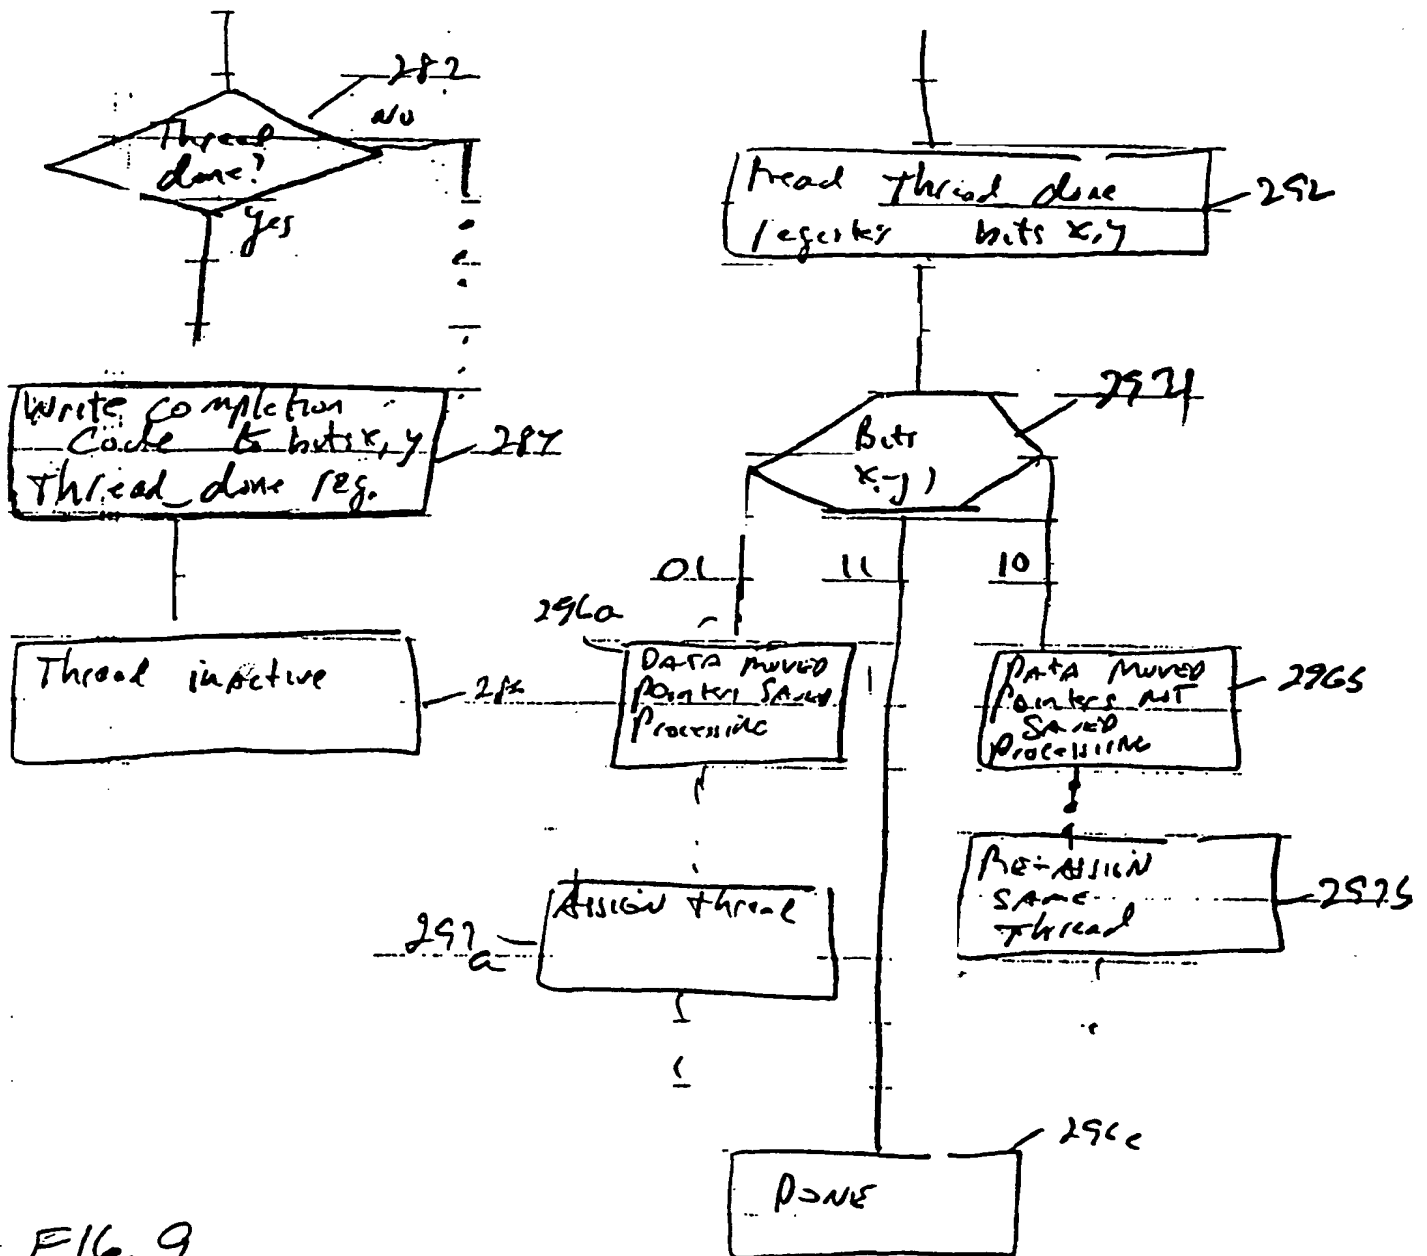 282
no
Thread
done?
yes
Write completion
Code to bits x, y
Thread_done reg.
284
Thread inactive
286
read Thread done
register bits x,y
292
Bits
x,y
294
01
11
10
296a
DATA MOVED
Pointers SAVED
Processing
DATA MOVED
Pointers NOT
SAVED
Processing
296b
ASSIGN thread
297
a
RE-ASSIGN
SAME
Thread
297b
296c
DONE
FIG. 9